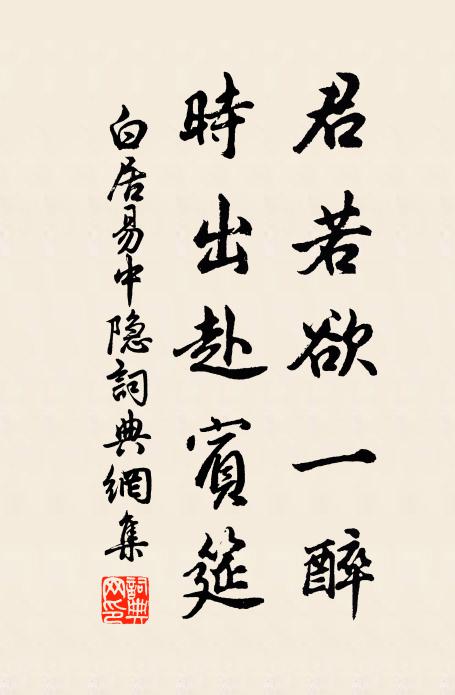 君若欲一醉
時出赴賓筵
白居易中隐詞典網集
詞典網印